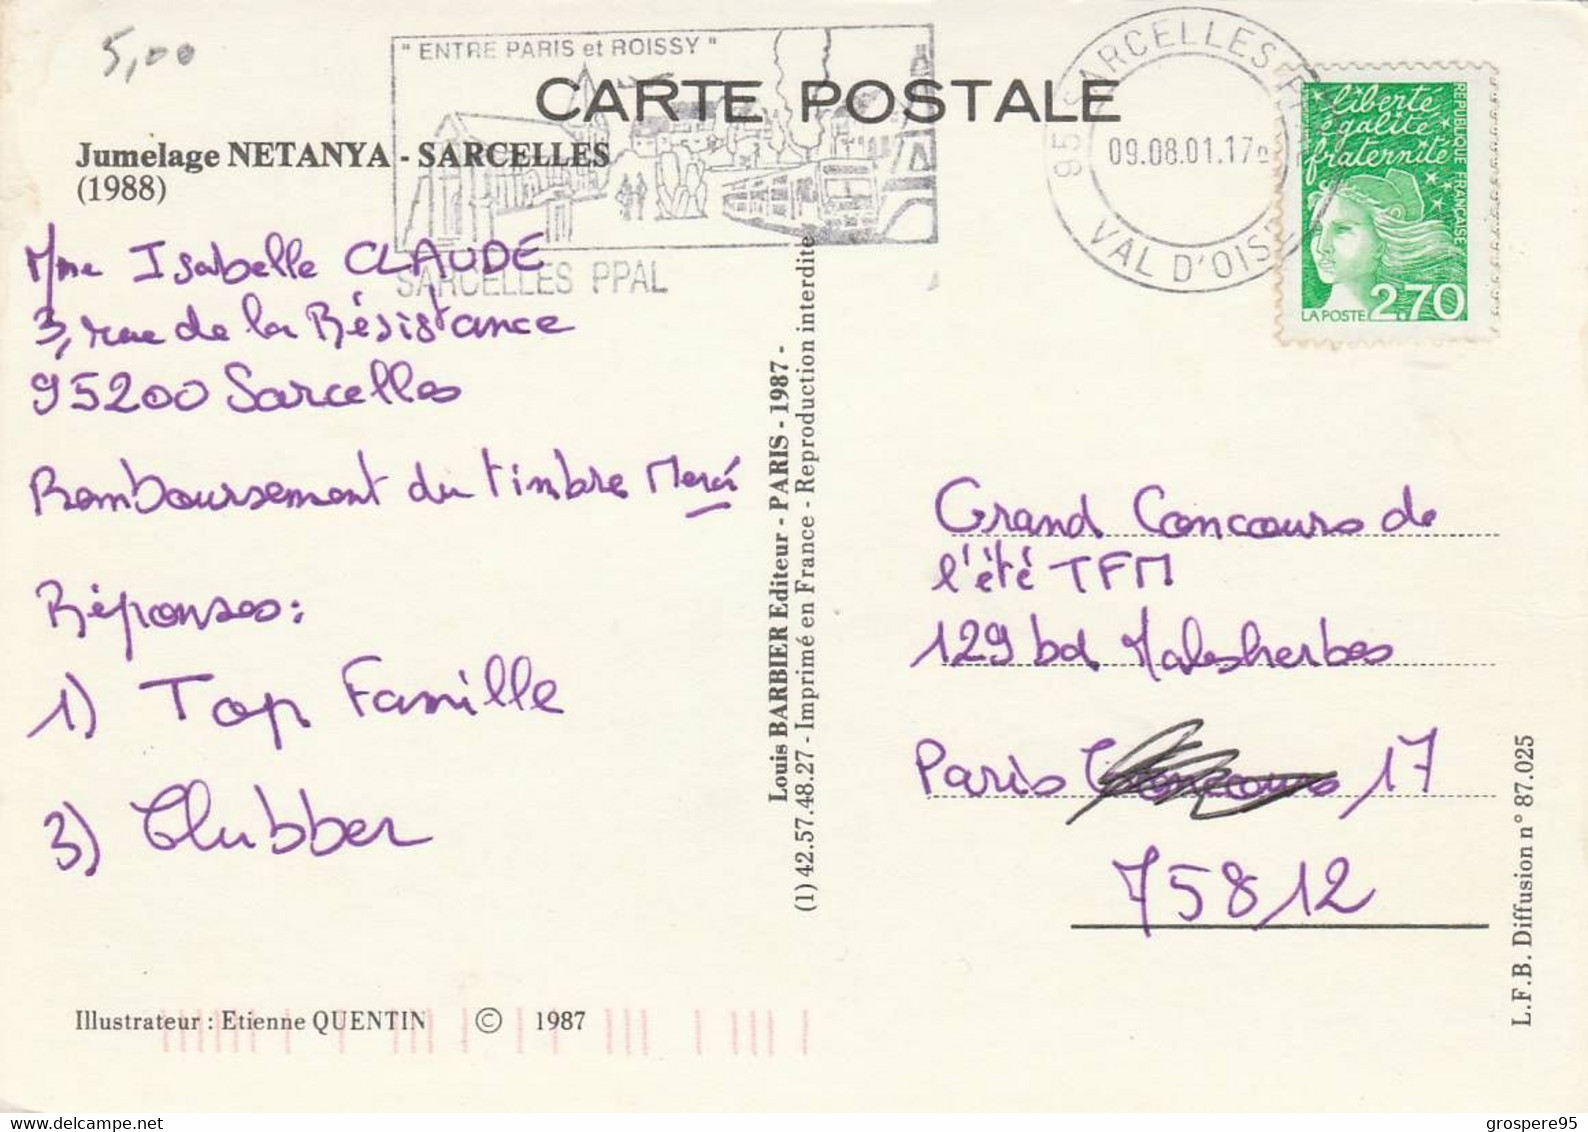 5,00
"ENTRE PARIS et ROISSY"
CARTE POSTALE
Jumelage NETANYA - SARCELLES
(1988)
SARCELLES PPAL
95 SARCELLES PPAL
09.08.01.17
VAL D'OISE
liberté
égalité
fraternité
REPUBLIQUE FRANÇAISE
LA POSTE 2.70
Mme Isabelle CLAUDE
3, rue de la Résistance
95200 Sarcelles
Remboursement du timbre Merci
Réponses:
1) Top Famille
3) Clubber
Louis BARBIER Editeur - PARIS - 1987 -
(1) 42.57.48.27 - Imprimé en France - Reproduction interdite
Grand Concours de
l'été TFM
129 bd Malesherbes
Paris 17
75812
L.F.B. Diffusion n° 87.025
Illustrateur : Etienne QUENTIN © 1987
grospere95